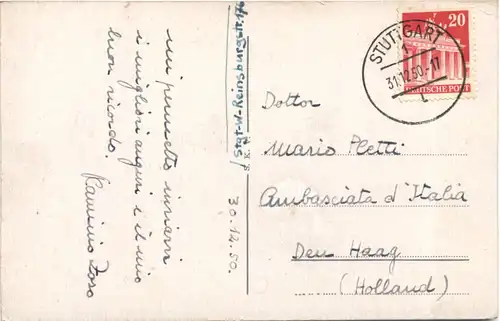 mi permetto inviarvi
i migliori auguri e il mio
buon ricordo.
30.12.50.
20
DEUTSCHE POST
STUTTGART
1
31.12.50.-17
t
Dottor
Mario Pletti
Ambasciata d'Italia
Den Haag
(Holland)